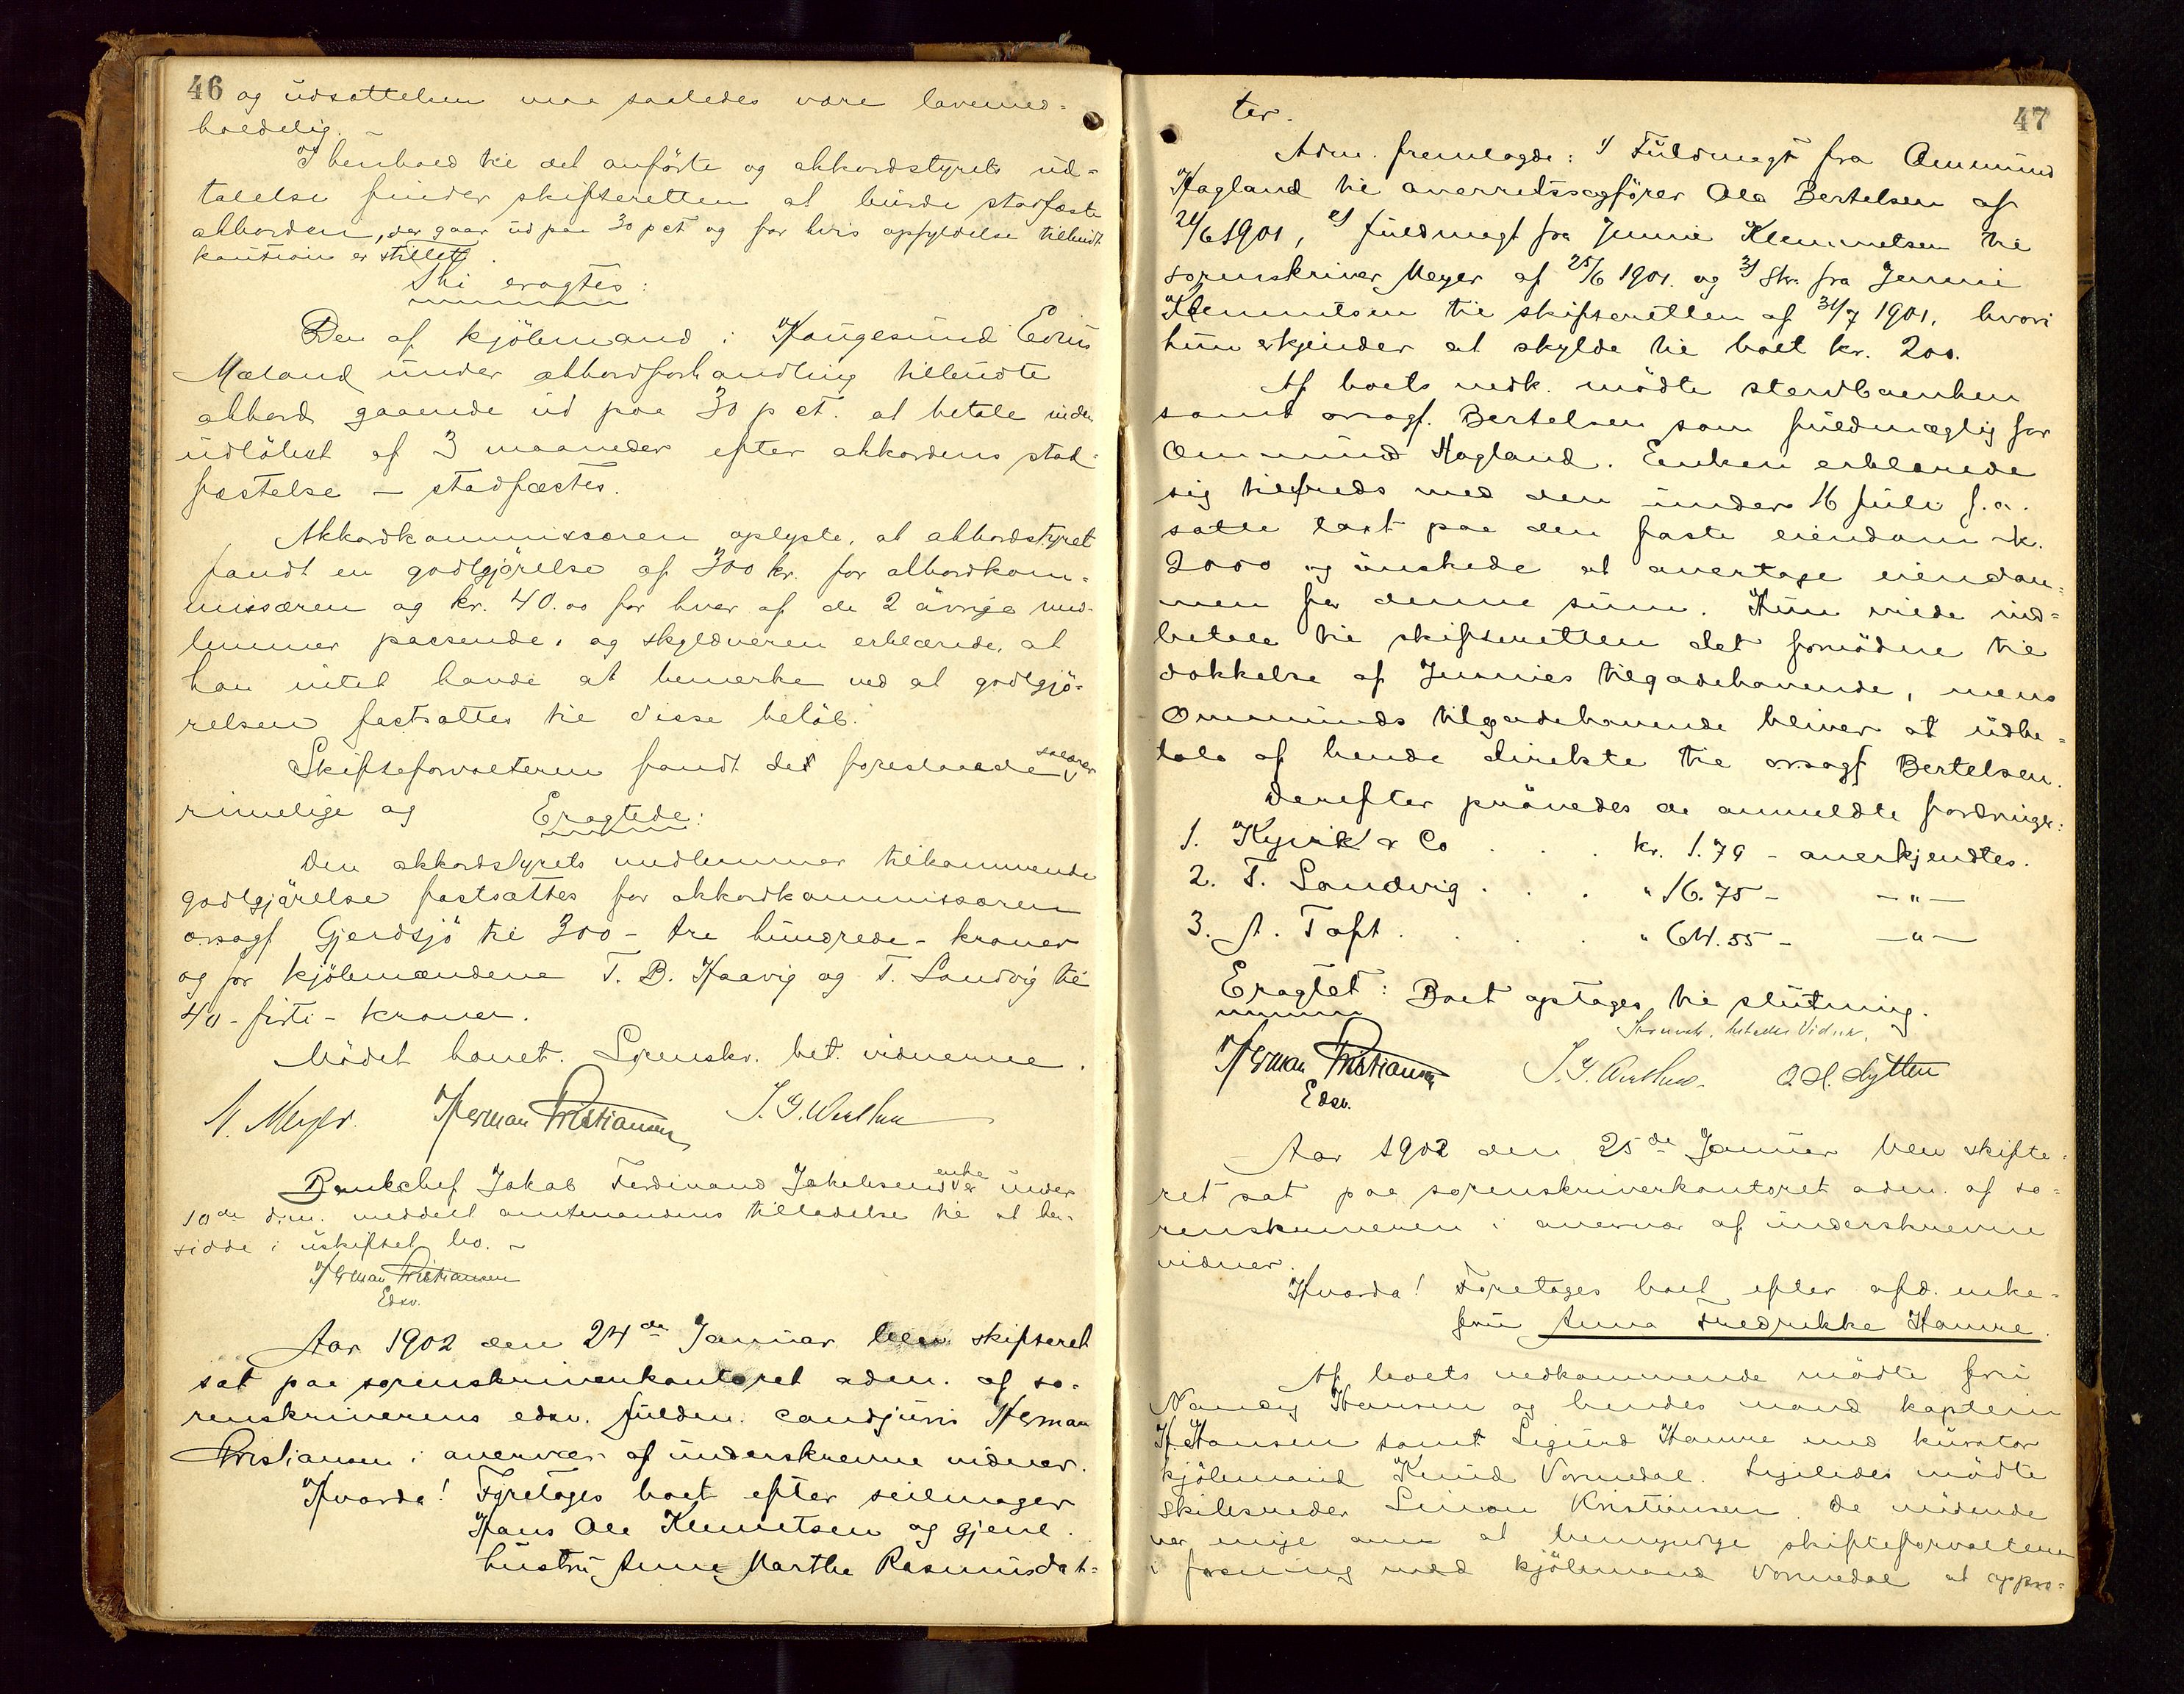 46 og udsættelsen maa saaledes være lovmed-
holdelig. –
I henhold til det anførte og akkordstyrets ud-
talelse finder skifteretten at burde stadfæste
akkorden, der gaar ud paa 30 pct og for hvis opfyldelse tilbudt
kaution er stillet.
Thi eragtes:
Den af kjøbmand i Haugesund Edvin
Mæland under akkordforhandling tilbudte
akkord gaaende ud paa 30 pct. at betale inden
udløbet af 3 maaneder efter akkordens stad-
fæstelse – stadfæstes.
Akkordkommissæren oplyste, at akkordstyret
fandt en godtgjørelse af 300 kr. for akkordkom-
missæren og kr. 40.00 for hver af de 2 øvrige med-
lemmer passende, og skyldneren erklærede, at
han intet havde at bemerke ved at godtgjø-
relsen fastsattes til disse beløb.
Skifteforvalteren fandt det foreslaaede salærer
rimelige og Eragtede:
Den akkordstyrets medlemmer tilkommende
godtgjørelse fastsættes for akkordkommissæren
orsagf Gjerdsjø til 300 – tre hundrede – kroner
og for kjøbmændene T. B. Haavig og T. Sandvig til
40 – firti – kroner.
Mødet hævet. Sorenskr. bet. vidnerne.
M. Meyer. Herman Christiansen J. G. Wathne
Bankchef Jakob Ferdinand Jakobsens enke er under
10de dm. meddelt amtmandens tilladelse til at hen-
sidde i uskiftet bo. –
Herman Christiansen
Edsv.
Aar 1902 den 24de Januar blev skifteret
sat paa sorenskriverkontoret adm. af so-
renskriverens edsv. fuldm. cand juris Herman
Christiansen i overvær af underskrevne vidner.
Hvorda! Foretages boet efter seilmager
Hans Ole Klemetsen og gjenl.
hustru Anne Marthe Rasmusdat-
47
ter.
Adm. fremlagde: 1) Fuldmagt fra Ommund
Hagland til overretssagfører Ole Bertelsen af
21/6 1901, 2) fuldmagt fra Jennie Klemmetsen til
sorenskriver Meyer af 25/6 1901. og 3) Skr. fra Jennie
Klemmetsen til skifteretten af 31/7 1901, hvori
hun erkjender at skylde til boet kr. 200.
Af boets vedk. mødte stervboenken
samt orsagf. Bertelsen som fuldmægtig for
Ommund Hagland. Enken erklærede
sig tilfreds med den under 16 juli f.a.
satte taxt paa den faste eiendom – k.
2000 og ønskede at overtage eiendom-
men for denne sum. Hun vilde ind-
betale til skifteretten det fornødne til
dækkelse af Jennies tilgodehavende, mens
Ommunds tilgodehavende bliver at udbe-
tale af hende direkte til orsagf Bertelsen.
Derefter prøvedes de anmeldte fordringer:
1. Kyvik & Co . . . kr. 1.79 – anerkjendtes.
2. T. Sandvig . . . " 16.75 – – " –
3. A. Toft . . . . " 64.55 – – " –
Eragtet: Boet optages til slutning.
Sorenskr. betaler Vidner.
Herman Christiansen J. G. Wathne. O. H. Lytten
Edsv.
– Aar 1902 den 25de Januar blev skifte-
ret sat paa sorenskriverkontoret adm. af so-
renskriveren i overvær af underskrevne
vidner.
Hvorda! Foretages boet efter afd. enke-
fru Anna Fredrikke Hamre.
Af boets vedkommende mødte fru
Nancy Hansen og hendes mand kaptein
H. Hansen samt Sigurd Hamre med kurator
kjøbmand Knud Vormedal. Ligeledes mødte
skibsreder Simon Kristiansen. De mødende
var enige om at bemyndige skifteforvalteren
i forening med kjøbmand Vormedal at oppro-